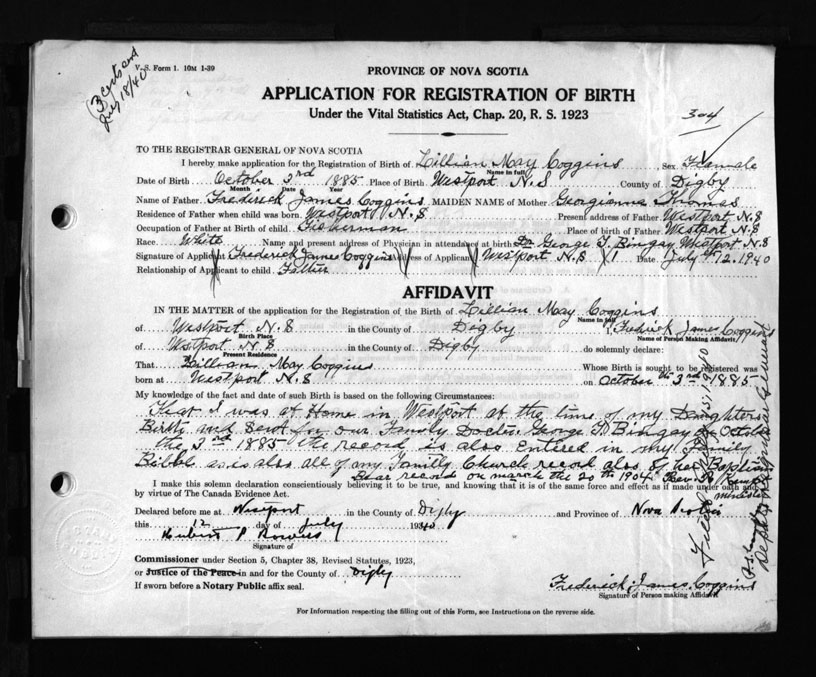 V. S. Form 1. 10M 1-39
July 18/40
PROVINCE OF NOVA SCOTIA
APPLICATION FOR REGISTRATION OF BIRTH
Under the Vital Statistics Act, Chap. 20, R. S. 1923
304
TO THE REGISTRAR GENERAL OF NOVA SCOTIA
I hereby make application for the Registration of Birth of Lillian May Coggins Sex Female
Name in full
Date of Birth October 3rd 1885 Place of Birth Westport N.S County of Digby
Month Date Year
Name of Father Frederick James Coggins MAIDEN NAME of Mother Georgianna Thomas
Residence of Father when child was born Westport N.S Present address of Father Westport N.S
Occupation of Father at Birth of child Fisherman Place of birth of Father Westport N.S
Race White Name and present address of Physician in attendance at birth Dr George T. Bingay Westport N.S
Signature of Applicant Frederick James Coggins Address of Applicant Westport N.S Date July 12. 1940
Relationship of Applicant to child Father
AFFIDAVIT
IN THE MATTER of the application for the Registration of the Birth of Lillian May Coggins
Name in full
of Westport N.S in the County of Digby I, Fredrick James Coggins
Birth Place Name of Person Making Affidavit
of Westport N.S in the County of Digby do solemnly declare:
Present Residence
That Lillian May Coggins Whose Birth is sought to be registered was
born at Westport N.S on October 3rd 1885
My knowledge of the fact and date of such Birth is based on the following Circumstances:
That I was at Home in Westport at the time of my Daughters
Birth and Sent for our Family Doctor George T. Bingay on October
the 3rd 1885 the record is also Entered in my Family
Bible as is also all of my Family Church record also of her Baptism
record on march the 20th 1904 Rev. Kemp
minister
I make this solemn declaration conscientiously believing it to be true, and knowing that it is of the same force and effect as if made under oath and
by virtue of The Canada Evidence Act.
Declared before me at Westport in the County of Digby and Province of Nova Scotia
this 12 day of July 1940
Signature of
Commissioner under Section 5, Chapter 38, Revised Statutes, 1923,
or Justice of the Peace in and for the County of Digby
If sworn before a Notary Public affix seal.
Frederick James Coggins
Signature of Person making Affidavit
For Information respecting the filling out of this Form, see Instructions on the reverse side.
Filed July 15, 1940
Deputy Registrar General